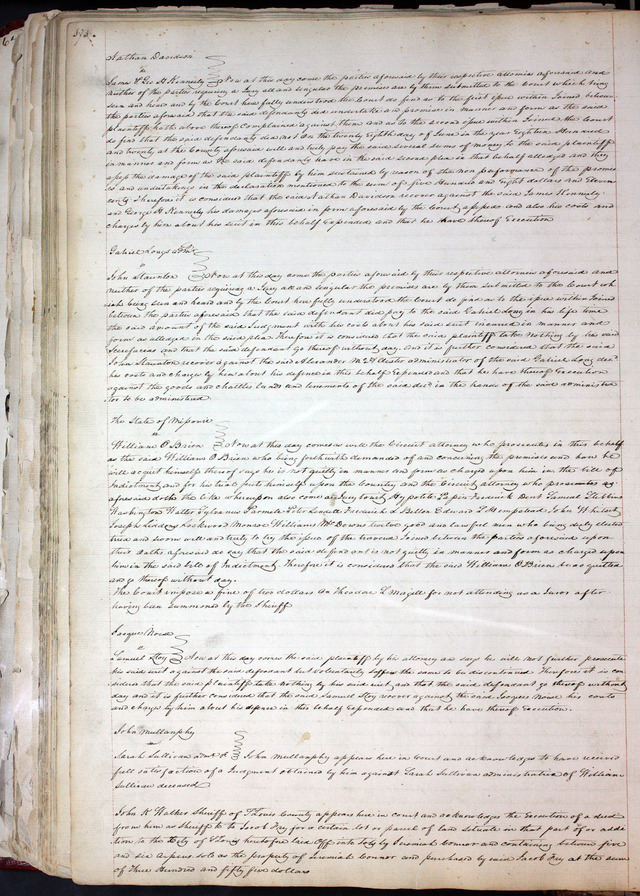 393.
Nathan Davidson
vs
James & Geo H Kennerly Now at this day come the parties aforesaid by their respective attornies aforesaid and
neither of the parties requiring a Jury all and singular the premises are by them submitted to the Court which being
seen and heard and by the Court here fully understood the Court do find as to the first issue within Joined between
the parties aforesaid that the said defendants did undertake and promise in manner and form as the said
plaintiff hath above thereof Complained against them and as to the second issue within Joined the Court
do find that the said defendants did not on the twenty Eighth day of June in the year Eighteen Hundred
and twenty at the County aforesaid well and truly pay the said several sums of money to the said plaintiff
in manner and form as the said defendants have in the said second plea in that behalf alledged and they
assess the damage of the said plaintiff by him sustained by reason of the non performance of the promis
es and undertakings in the declaration mentioned to the sum of five Hundred and Eight dollars and Eleven
cents Therefore it is considered that the said Nathan Davidson recover against the said James Kennerly
and George H Kennerly his damages aforesaid in form aforesaid by the Court assessed and also his costs and
charges by him about his suit in this behalf Expended and that he have thereof Execution
Gabriel Longs Adm.
vs
John Staunton Now at this day come the parties aforesaid by their respective attornies aforesaid and
neither of the parties requiring a Jury all and singular the premises are by them submitted to the Court wh
ich being seen and heard and by the Court here fully understood the Court do find as to the issue within Joined
between the parties aforesaid that the said defendant did pay to the said Gabriel Long in his life time
the said amount of the said Judgment with his costs about his said suit incurred in manner and
form as alledged in the said plea Therefore it is considered that the said plaintiff take nothing by his said
Scirefacias and that the said defendant go thereof without day. And it is further considered that the said
John Staunton recover against the said Alexander administrator of the said Gabriel Long dec.
his costs and charges by him about his defence in this behalf Expended and that he have thereof Execution
against the goods and chattles lands and tenements of the said dec. in the hands of the said administra
tor to be administered.
The State of Missouri
vs
William O'Brien Now at this day comes as well the Circuit attorney who prosecutes in this behalf
as the said William O'Brien who being forthwith demanded of and concerning the premises and how he
will acquit himself thereof says he is not guilty in manner and form as charged upon him in the bill of
Indictment and for his trial puts himself upon the Country and the Circuit attorney who prosecutes as
aforesaid doth the like whereupon also come a Jury towit Hypolite Papin Frederick Dent Samuel Stebbins
Washington Walter Sylvanus Peter Lindell Frederick L Billon Edward L Hempstead John
Joseph Liddons Lockwood Monroe William McDowns twelve good and lawful men who being duly elected
tried and sworn well and truly to try the issue of the traverse Joined between the parties aforesaid upon
their oaths aforesaid do say that the said defendant is not guilty in manner and form as charged upon
him in the said bill of Indictment Therefore it is considered that the said William O'Brien be acquitted
and go thereof without day.
The Court impose a fine of two dollars on Theodore L Magill for not attending as a Juror after
having been summoned by the Sheriff
vs
Samuel Now at this day comes the said plaintiff by his attorney and says he will not further prosecute
his said suit against the said defendant but voluntarily suffers the same to be discontinued Therefore it is con
sidered that the said plaintiff take nothing by his said suit and that the said defendant go thereof without
day and it is further considered that the said Samuel recover against the said his costs
and charges by him about his defence in this behalf Expended and that he have thereof Execution.
John Mullanphy
vs
Sarah Sullivan admx &c John Mullanphy appears here in Court and acknowledges to have received
full satisfaction of a Judgment obtained by him against Sarah Sullivan administratrix of William
Sullivan deceased
John K Walker Sheriff of St Louis County appears here in court and acknowledges the Execution of a deed
from him as Sheriff &c to Jacob Fry for a certain lot or parcel of land situate in that part of or addi
tion to the City of St Louis heretofore laid off into lots by Jeremiah Connor and containing between five
and six Arpens sold as the property of Jeremiah Connor and purchased by said Jacob Fry at the sum
of Three Hundred and fifty five dollars